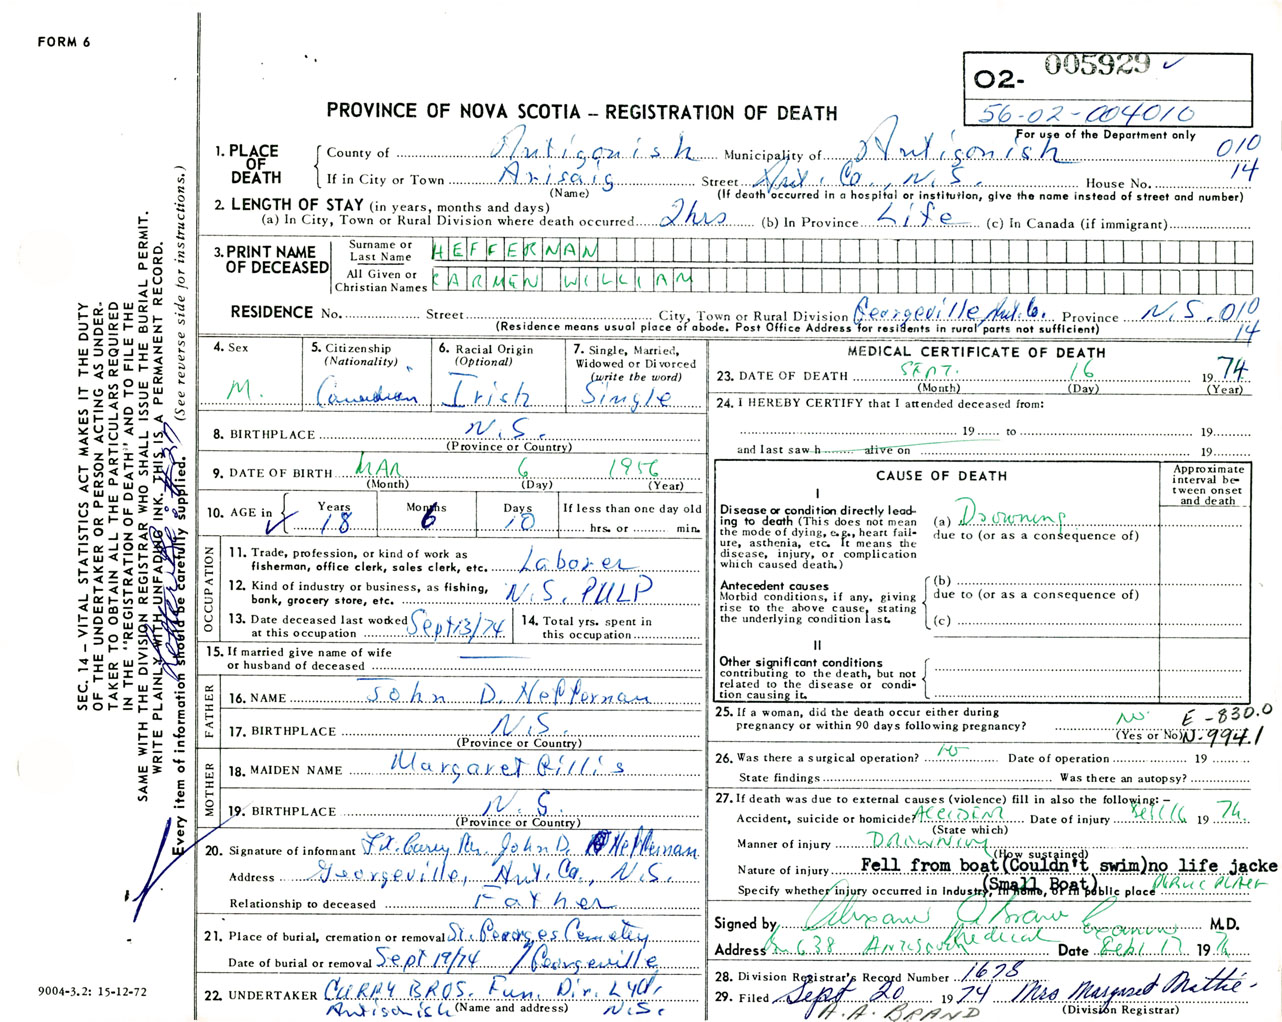 FORM 6
02- 005929 ✓
56-02-004010
For use of the Department only
PROVINCE OF NOVA SCOTIA – REGISTRATION OF DEATH
1. PLACE OF DEATH
County of Antigonish Municipality of Antigonish 010
If in City or Town Arisaig Street Ant. Co., N.S. House No. 14
(Name) (If death occurred in a hospital or institution, give the name instead of street and number)
2. LENGTH OF STAY (in years, months and days)
(a) In City, Town or Rural Division where death occurred 2hrs (b) In Province Life (c) In Canada (if immigrant)
3. PRINT NAME OF DECEASED
Surname or Last Name HEFFERNAN
All Given or Christian Names CARMEN WILLIAM
RESIDENCE No. Street City, Town or Rural Division Georgeville Ant. Co. Province N.S. 010
(Residence means usual place of abode. Post Office Address for residents in rural parts not sufficient) 14
4. Sex M.
5. Citizenship (Nationality) Canadian
6. Racial Origin (Optional) Irish
7. Single, Married, Widowed or Divorced (write the word) Single
8. BIRTHPLACE N.S.
(Province or Country)
9. DATE OF BIRTH MAR 6 1956
(Month) (Day) (Year)
10. AGE in Years 18 Months 6 Days 10 If less than one day old hrs. or min.
OCCUPATION
11. Trade, profession, or kind of work as fisherman, office clerk, sales clerk, etc. Laborer
12. Kind of industry or business, as fishing, bank, grocery store, etc. N.S. PULP
13. Date deceased last worked at this occupation Sept 13/74
14. Total yrs. spent in this occupation
15. If married give name of wife or husband of deceased
FATHER
16. NAME John D. Heffernan
17. BIRTHPLACE N.S.
(Province or Country)
MOTHER
18. MAIDEN NAME Margaret Gillis
19. BIRTHPLACE N.S.
(Province or Country)
20. Signature of informant John D. Heffernan
Address Georgeville, Ant. Co., N.S.
Relationship to deceased Father
21. Place of burial, cremation or removal St. Georges Cemetery
Date of burial or removal Sept 19/74 / Georgeville
22. UNDERTAKER CURRY BROS. Fun. Dir. LTD.
Antigonish (Name and address) N.S.
MEDICAL CERTIFICATE OF DEATH
23. DATE OF DEATH SEPT. 16 1974
(Month) (Day) (Year)
24. I HEREBY CERTIFY that I attended deceased from:
19 to 19
and last saw h alive on 19
CAUSE OF DEATH
Approximate interval between onset and death
I
Disease or condition directly leading to death (This does not mean the mode of dying, e.g., heart failure, asthenia, etc. It means the disease, injury, or complication which caused death.)
(a) Drowning
due to (or as a consequence of)
Antecedent causes
Morbid conditions, if any, giving rise to the above cause, stating the underlying condition last.
(b)
due to (or as a consequence of)
(c)
II
Other significant conditions contributing to the death, but not related to the disease or condition causing it.
25. If a woman, did the death occur either during pregnancy or within 90 days following pregnancy? No
(Yes or No)
E-830.0
N-994.1
26. Was there a surgical operation? no Date of operation 19
State findings Was there an autopsy?
27. If death was due to external causes (violence) fill in also the following:–
Accident, suicide or homicide? ACCIDENT Date of injury Sept 16 1974
(State which)
Manner of injury DROWNING
(How sustained)
Nature of injury Fell from boat (Couldn't swim) no life jacke
(Small Boat)
Specify whether injury occurred in Industry, in home, or in public place PUBLIC PLACE
Signed by Medical Examiner M.D.
Address Box 638 ANTIGONISH Date Sept. 17 1974
28. Division Registrar's Record Number 1678
29. Filed Sept 20 1974 Mrs Margaret Mattie
A.A. BRAND (Division Registrar)
SEC. 14 – VITAL STATISTICS ACT MAKES IT THE DUTY
OF THE UNDERTAKER OR PERSON ACTING AS UNDER-
TAKER TO OBTAIN ALL THE PARTICULARS REQUIRED
IN THE "REGISTRATION OF DEATH" AND TO FILE THE
SAME WITH THE DIVISION REGISTRAR WHO SHALL ISSUE THE BURIAL PERMIT.
WRITE PLAINLY WITH UNFADING INK. THIS IS A PERMANENT RECORD.
Every item of information should be carefully supplied. (See reverse side for instructions.)
9004-3.2: 15-12-72